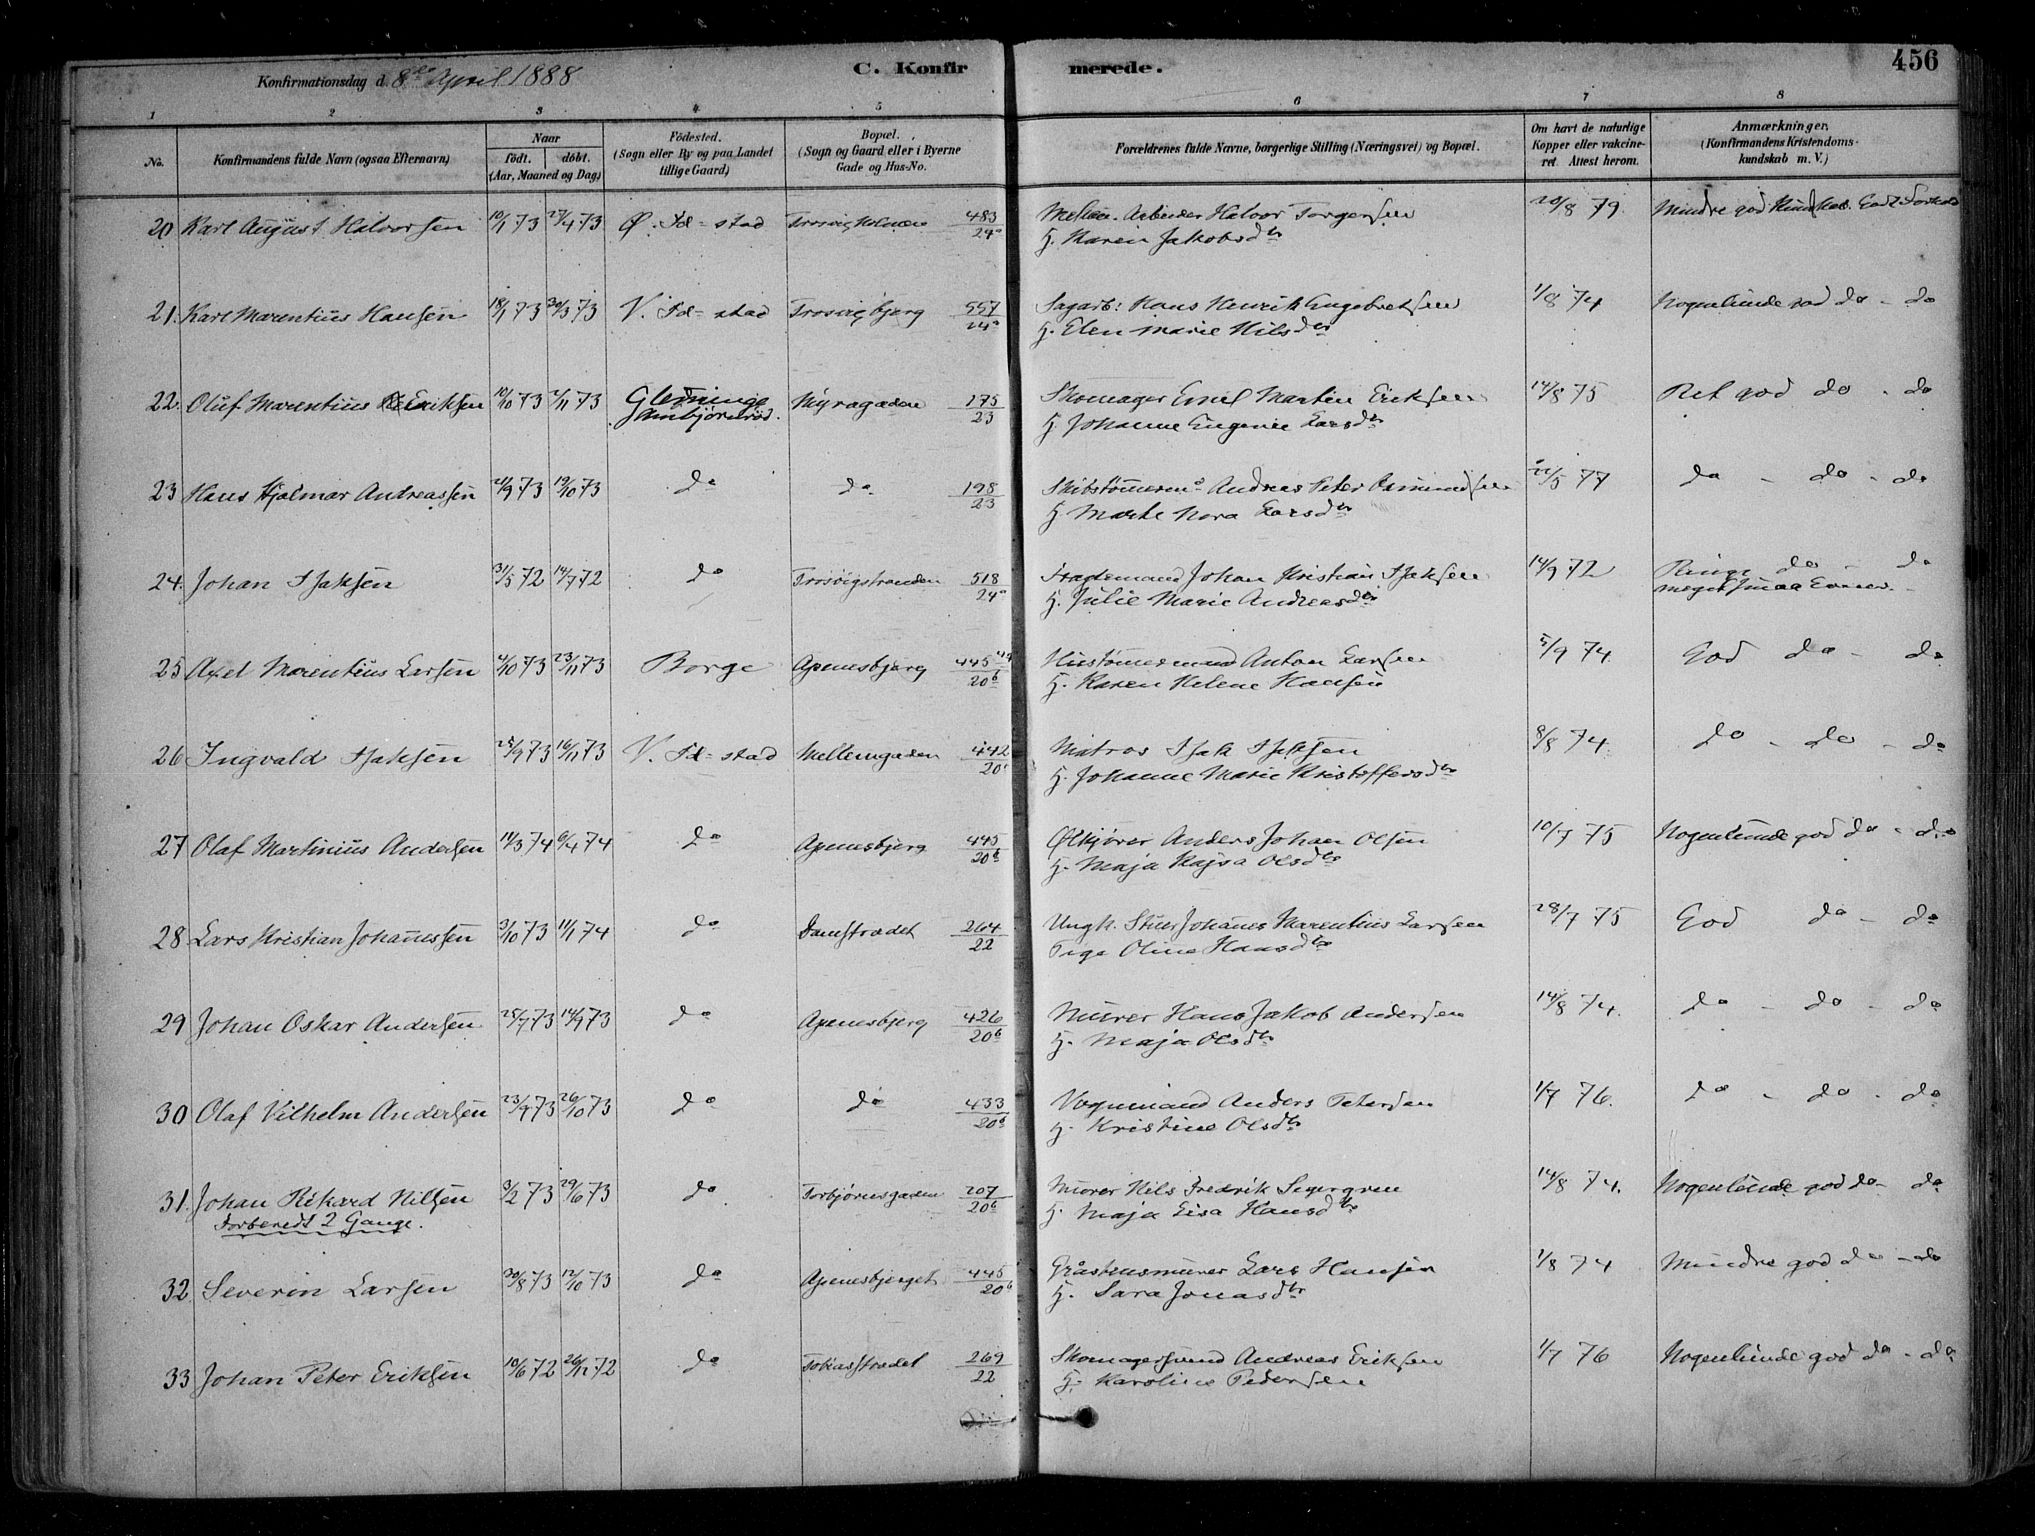 456
Konfirmationsdag d. 8de April 1888
C. Konfirmerede.
1 2 3 4 5 6 7 8
No.
Konfirmandens fulde Navn (ogsaa Efternavn)
Naar
født. døbt.
(Aar, Maaned og Dag)
Födested.
(Sogn eller By og paa Landet
tillige Gaard)
Bopæl.
(Sogn og Gaard eller i Byerne
Gade og Hus-No.
Forældrenes fulde Navne, borgerlige Stilling (Næringsvei) og Bopæl.
Om havt de naturlige
Kopper eller vakcine-
ret Attest herom.
Anmærkninger.
(Konfirmandens Kristendoms-
kundskab m. V.)
20 Karl August Halvorsen 10/1 73 27/4 73 Ø. Fd-stad Trosvigholmen 483/24a Arbeider Halvor Torgersen 20/8 79 Mindre god Kundskab. Godt Forhold
H. Karen Jakobsdtr
21. Karl Marentius Hansen 18/1 73 30/3 73 V. Fd-stad Trosvigbjerg 557/24a Sagarb: Hans Henrik Engebretsen 1/8 74 Nogenlunde god do - do
H. Elen Marie Nilsdtr
22. Oluf Marentius Eriksen 10/10 73 2/11 73 Glemminge Myragaden 175/23 Skomager Emil Martin Eriksen 14/8 75 Ret god do - do
H. Johanne Eugenie Larsdtr
23 Hans Hjalmar Andreassen 21/9 73 19/10 73 do do 198/23 Andreas Peter 22/5 77 do - do - do
H. Marte Nora Larsdtr
24. Johan Isaksen 31/5 72 14/7 72 do Trosvigstranden 518/24a Fragtemand Johan Kristian Isaksen 14/9 72 Ringe do - do
H. Julie Marie Andreasdtr meget smaa Evner.
25 Axel Marentius Larsen 4/10 73 23/11 73 Borge Apenesbjerg 445/20b Hustømmermand Anton Larsen 5/9 74 God do - do
H. Karen Helene Hansen
26 Ingvald Isaksen 25/9 73 16/11 73 V. Fd-stad Mellemgaden 442/20 Matros Isak Isaksen 8/8 74. do - do - do
H. Johanne Marie Kristoffersdtr
27 Olaf Martinius Andersen 14/3 74 6/4 74 do Apenesbjerg 445/20b Ølkjører Anders Johan Olsen 10/7 75 Nogenlunde god do - do
H. Maja Kajsa Olsdtr
28 Lars Kristian Johannessen 3/10 73 11/1 74 do Damstrædet 264/22 Ungk. Johanes Marentius Larsen 28/7 75 God do - do
Pige Oline Hansdtr
29 Johan Oskar Andersen 25/7 73 14/9 73 do Apenesbjerg 426/20b Murer Hans Jakob Andersen 14/8 74. do - do - do
H. Maja Olsdtr
30 Olaf Vilhelm Andersen 23/9 73 26/10 73 do do 433/20b Vognmand Anders Petersen 1/7 76. do - do - do
H. Kristine Olsdtr
31. Johan Rikard Nilsen 3/2 73 29/6 73 do Torbjørnsgaden 207/20b Murer Nils Fredrik Segergren 14/8 74. Nogenlunde god do - do
Forberedt 2 Gange. H. Maja Lisa Hansdtr
32 Severin Larsen 30/8 73 12/10 73 do Apenesbjerget 445/20b Gråstensmurer Lars Hansen 1/8 74 Mindre god do - do
H. Sara Jonasdtr
33 Johan Peter Eriksen 10/6 72 26/12 72 do Tobiasstrædet 269/22 Skomagersvend Andreas Eriksen 1/7 76 Nogenlunde god do - do
H. Karoline Pedersen